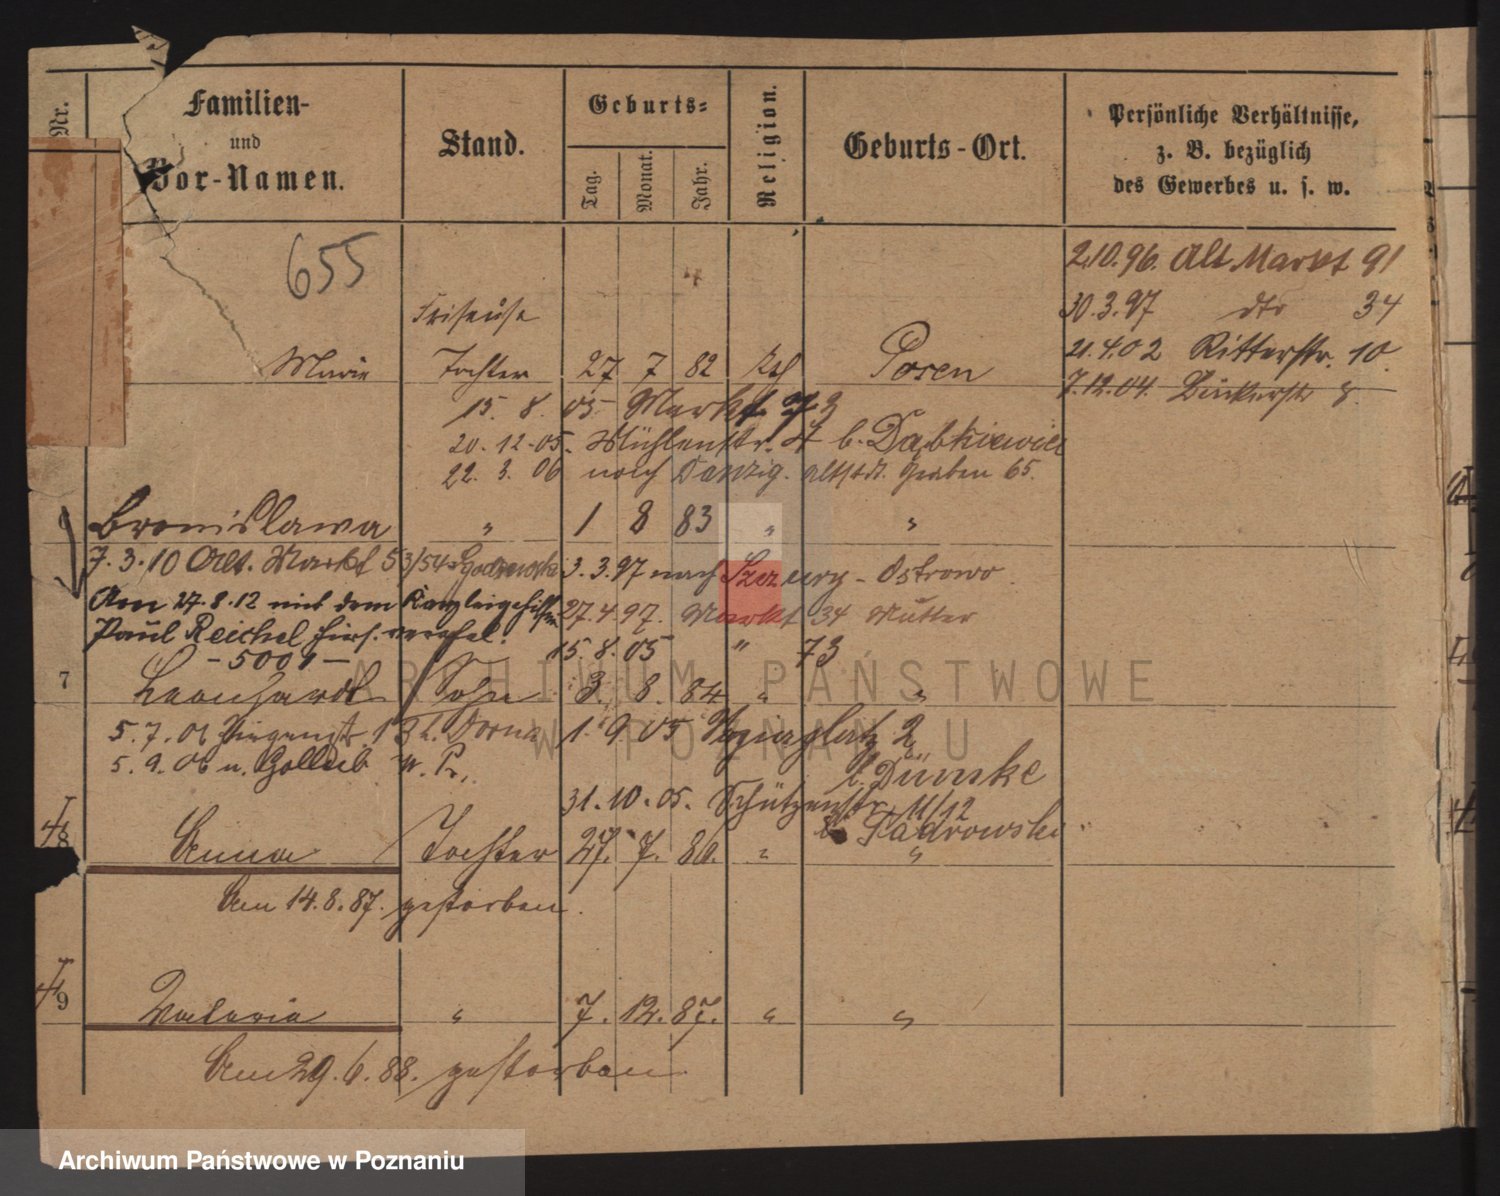 Nr.
Familien-
und
Vor-Namen.
Stand.
Geburts=
Tag.
Monat.
Jahr.
Religion.
Geburts-Ort.
Persönliche Verhältnisse,
z. B. bezüglich
des Gewerbes u. s. w.
655
2.10.96. Alt Markt 91
30.3.97 dto 34
Friseuse
21.4.02 Ritterstr. 10.
Marie Tochter 27 7 82 kth Posen
7.12.04. 8
15. 8. 05 Markt 73
20. 12. 05. Mühlenstr. b. Dąbkiewicz
22. 3. 06 nach Danzig. Altstdt. Graben 65.
Bronislawa " 1 8 83 " "
7. 3. 10 Alt. Markt 53/54
3. 3. 97 nach - Ostrowo
Am 27.8.12 mit dem Kanzleigehilfen
27.4.97. Markt 34 Mutter
Paul Reichel hier. verehel.
15. 8. 05 " 73
- 5001 -
7 Leonhardt Sohn 3. 8. 84 " "
5. 7. 06
1. 9. 05 2
5. 9. 06 u. Gollub W. Pr.
b. Dümke
31. 10. 05. Schützenstr. 11/12
b. Kadrowski
8 Anna Tochter 27. 7. 86. " "
Am 14. 8. 87. gestorben.
9 Valeria " 7. 12. 87. " "
Am 29. 6. 88. gestorben
ARCHIWUM PAŃSTWOWE
W POZNANIU
Archiwum Państwowe w Poznaniu